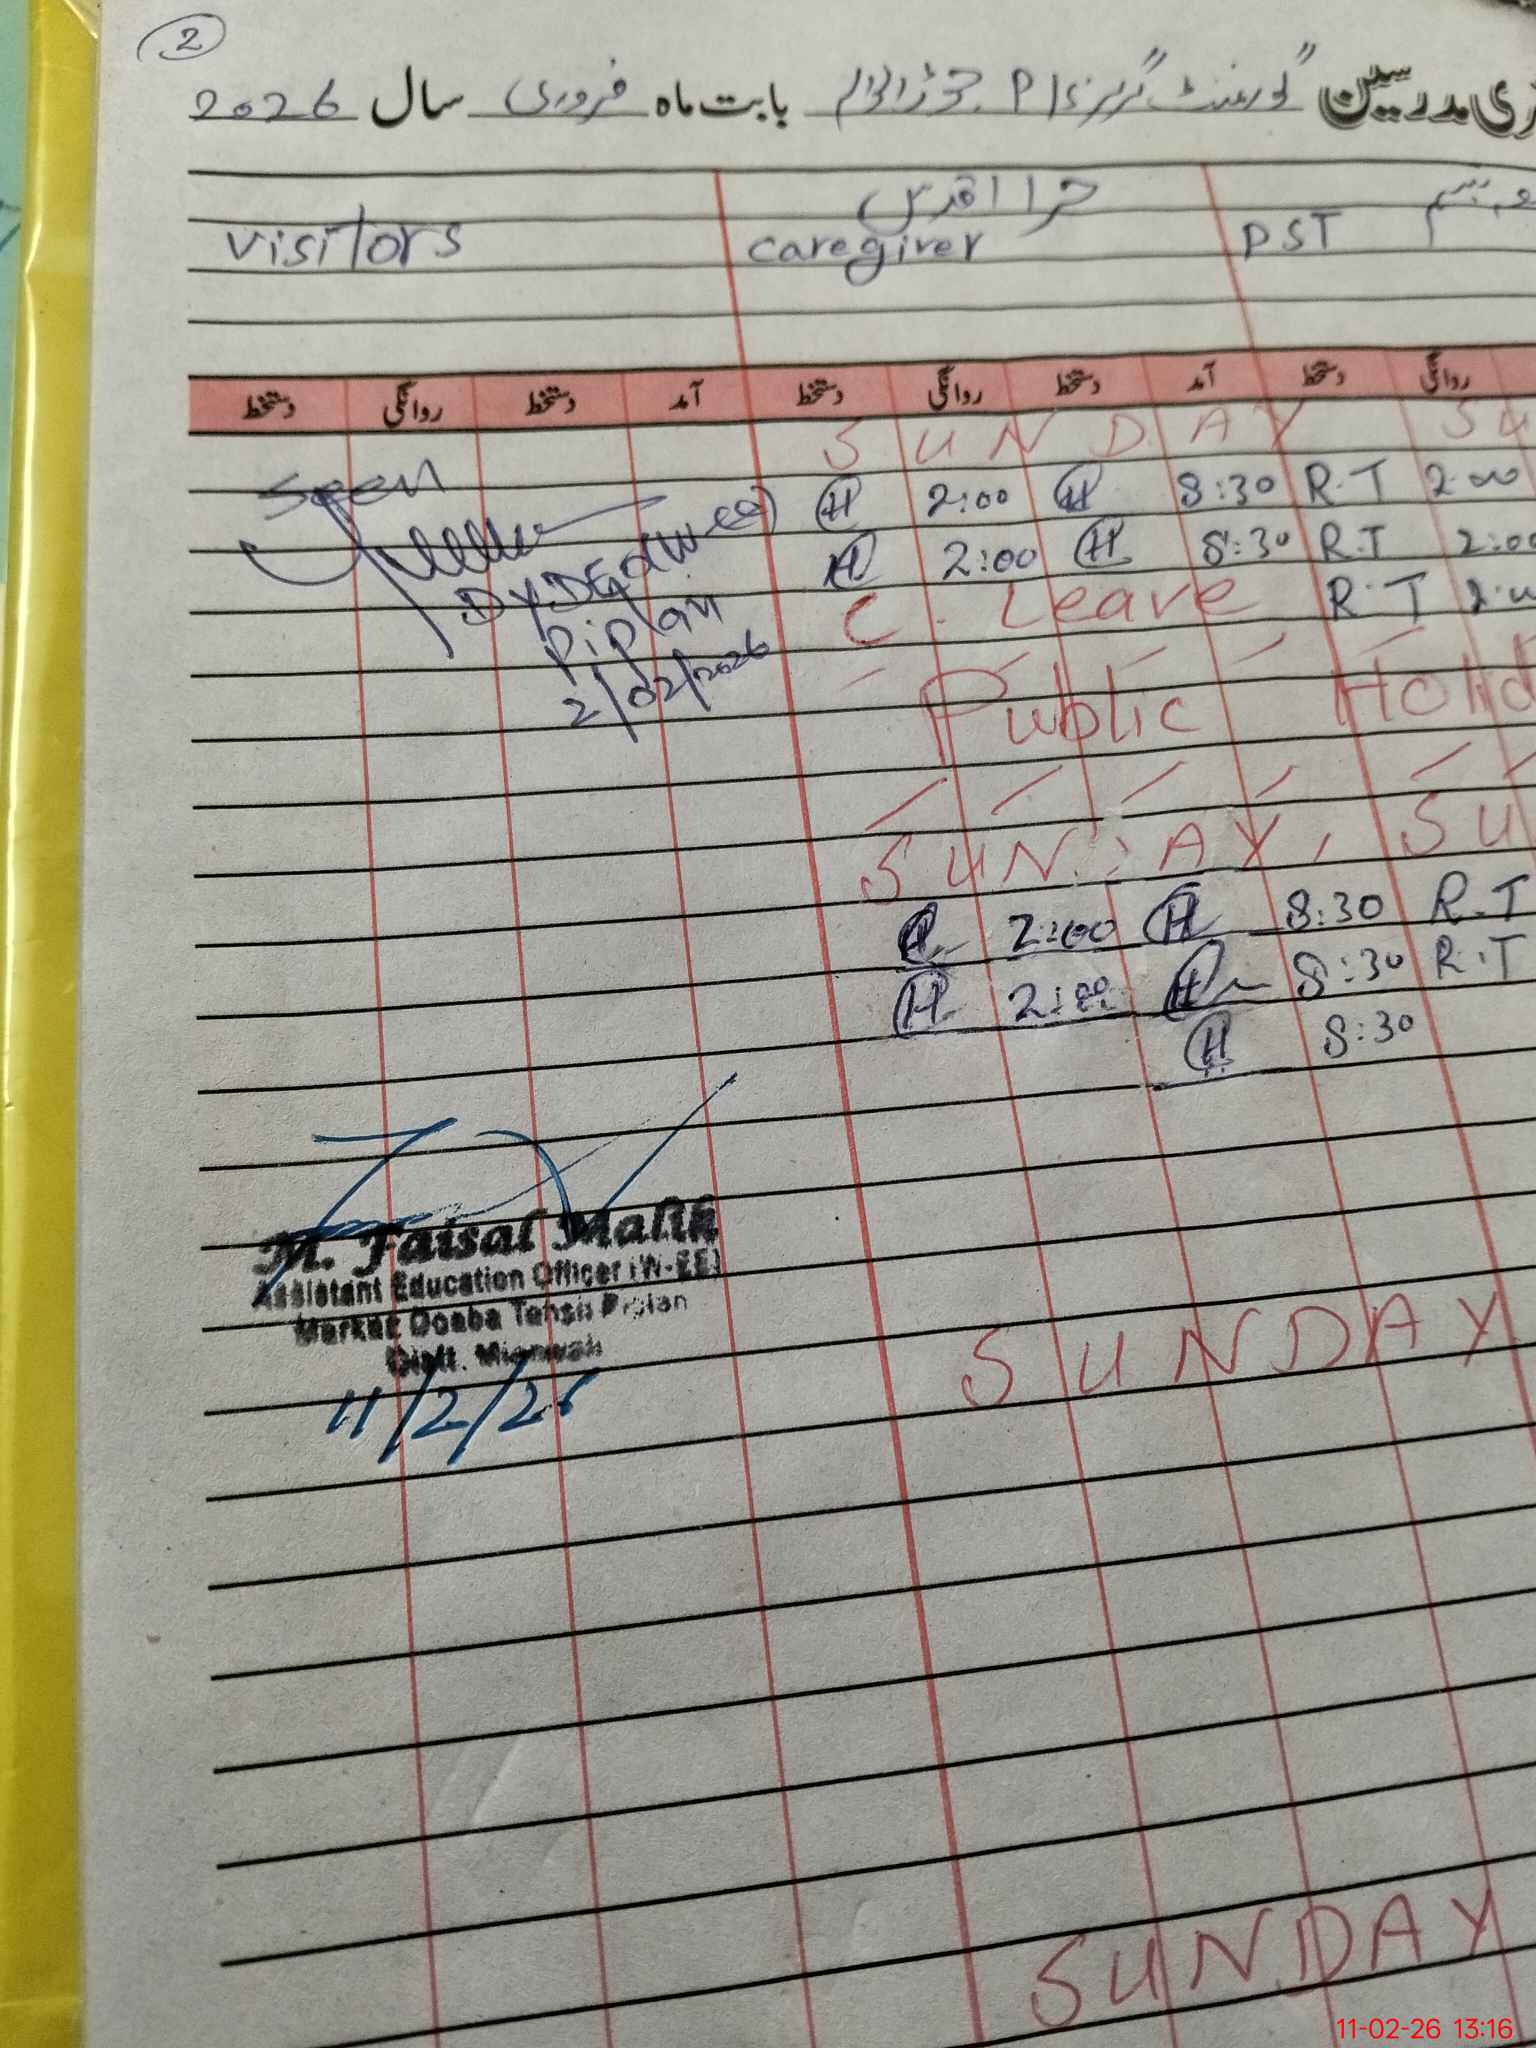 2
ری مدرسین گورنمنٹ گرلز P/S بابت ماہ فروری سال 2026
حرا اقدس
PST caregiver visitors
روانگی دستخط آمد دستخط روانگی دستخط آمد دستخط روانگی دستخط
SUNDAY SU
2:00 R.T 8:30 H 2:00 H
2:00 R.T 8:30 H 2:00 H
R.T C. Leave
Seen
DyDEO(W-EE)
Piplan
2/02/2026
Public Holid
SUNDAY, SU
R.T 8:30 H 2:00 H
R.T 8:30 H 2:00 H
8:30 H
M. Faisal Malik
Assistant Education Officer (W-EE)
Markaz Doaba Tehsil Piplan
Distt. Mianwali
11/2/26
SUNDAY
SUNDAY
11-02-26 13:16